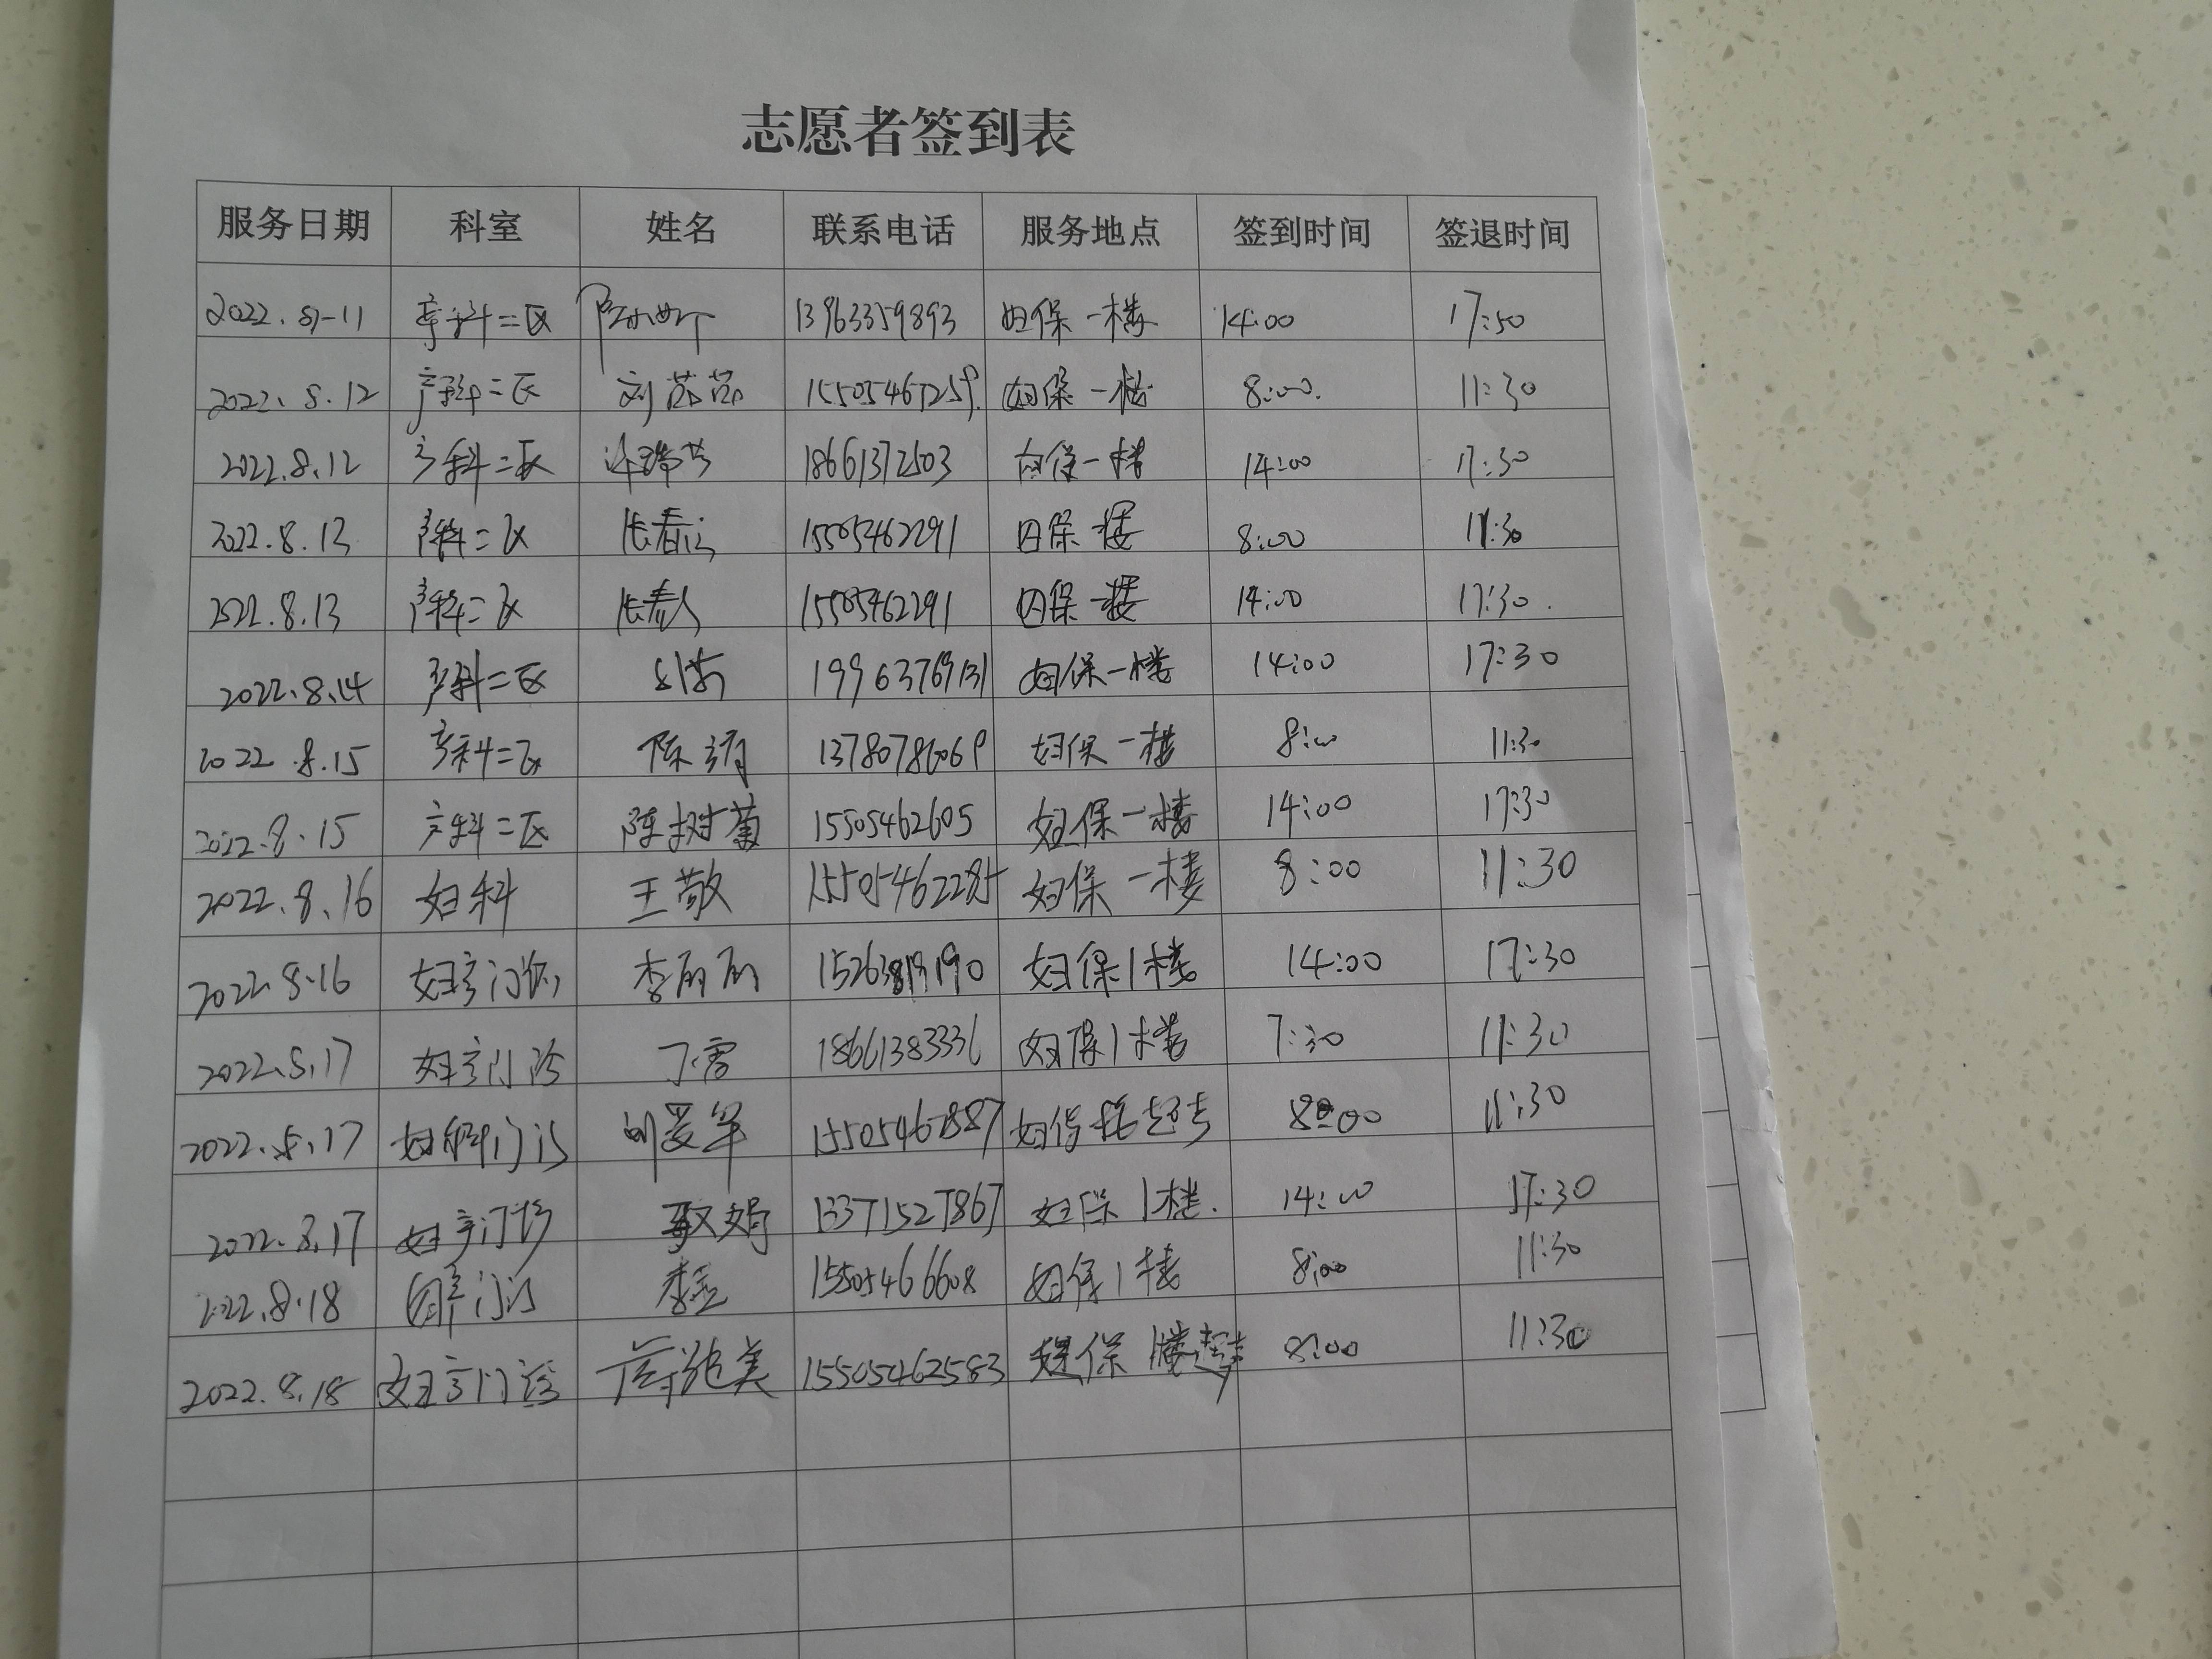 志愿者签到表
服务日期 科室 姓名 联系电话 服务地点 签到时间 签退时间
2022.8-11 产科二区 13963359893 妇保一楼 14:00 17:50
2022.8.12 产科二区 刘茹茹 15505467259 妇保一楼 8:00 11:30
2022.8.12 产科二区 许瑞芳 18661372503 妇保一楼 14:00 17:30
2022.8.13 产科二区 15505462291 妇保一楼 8:00 11:30
2022.8.13 产科二区 15505462291 妇保一楼 14:00 17:30
2022.8.14 产科二区 妇保一楼 14:00 17:30
2022.8.15 产科二区 陈 13780786069 妇保一楼 8:00 11:30
2022.8.15 产科二区 陈树菊 15505462605 妇保一楼 14:00 17:30
2022.8.16 妇科 王敬 15505462285 妇保一楼 8:00 11:30
2022.8.16 妇产门诊 李丽丽 妇保1楼 14:00 17:30
2022.8.17 妇产门诊 丁雪 18661383336 妇保1楼 7:30 11:30
2022.8.17 妇产科门诊 刘爱军 妇保 8:00 11:30
2022.8.17 妇产门诊 13371527867 妇保1楼. 14:00 17:30
2022.8.18 妇产门诊 15505466608 妇保1楼 8:00 11:30
2022.8.18 妇产门诊 美 15505462583 妇保1楼 8:00 11:30